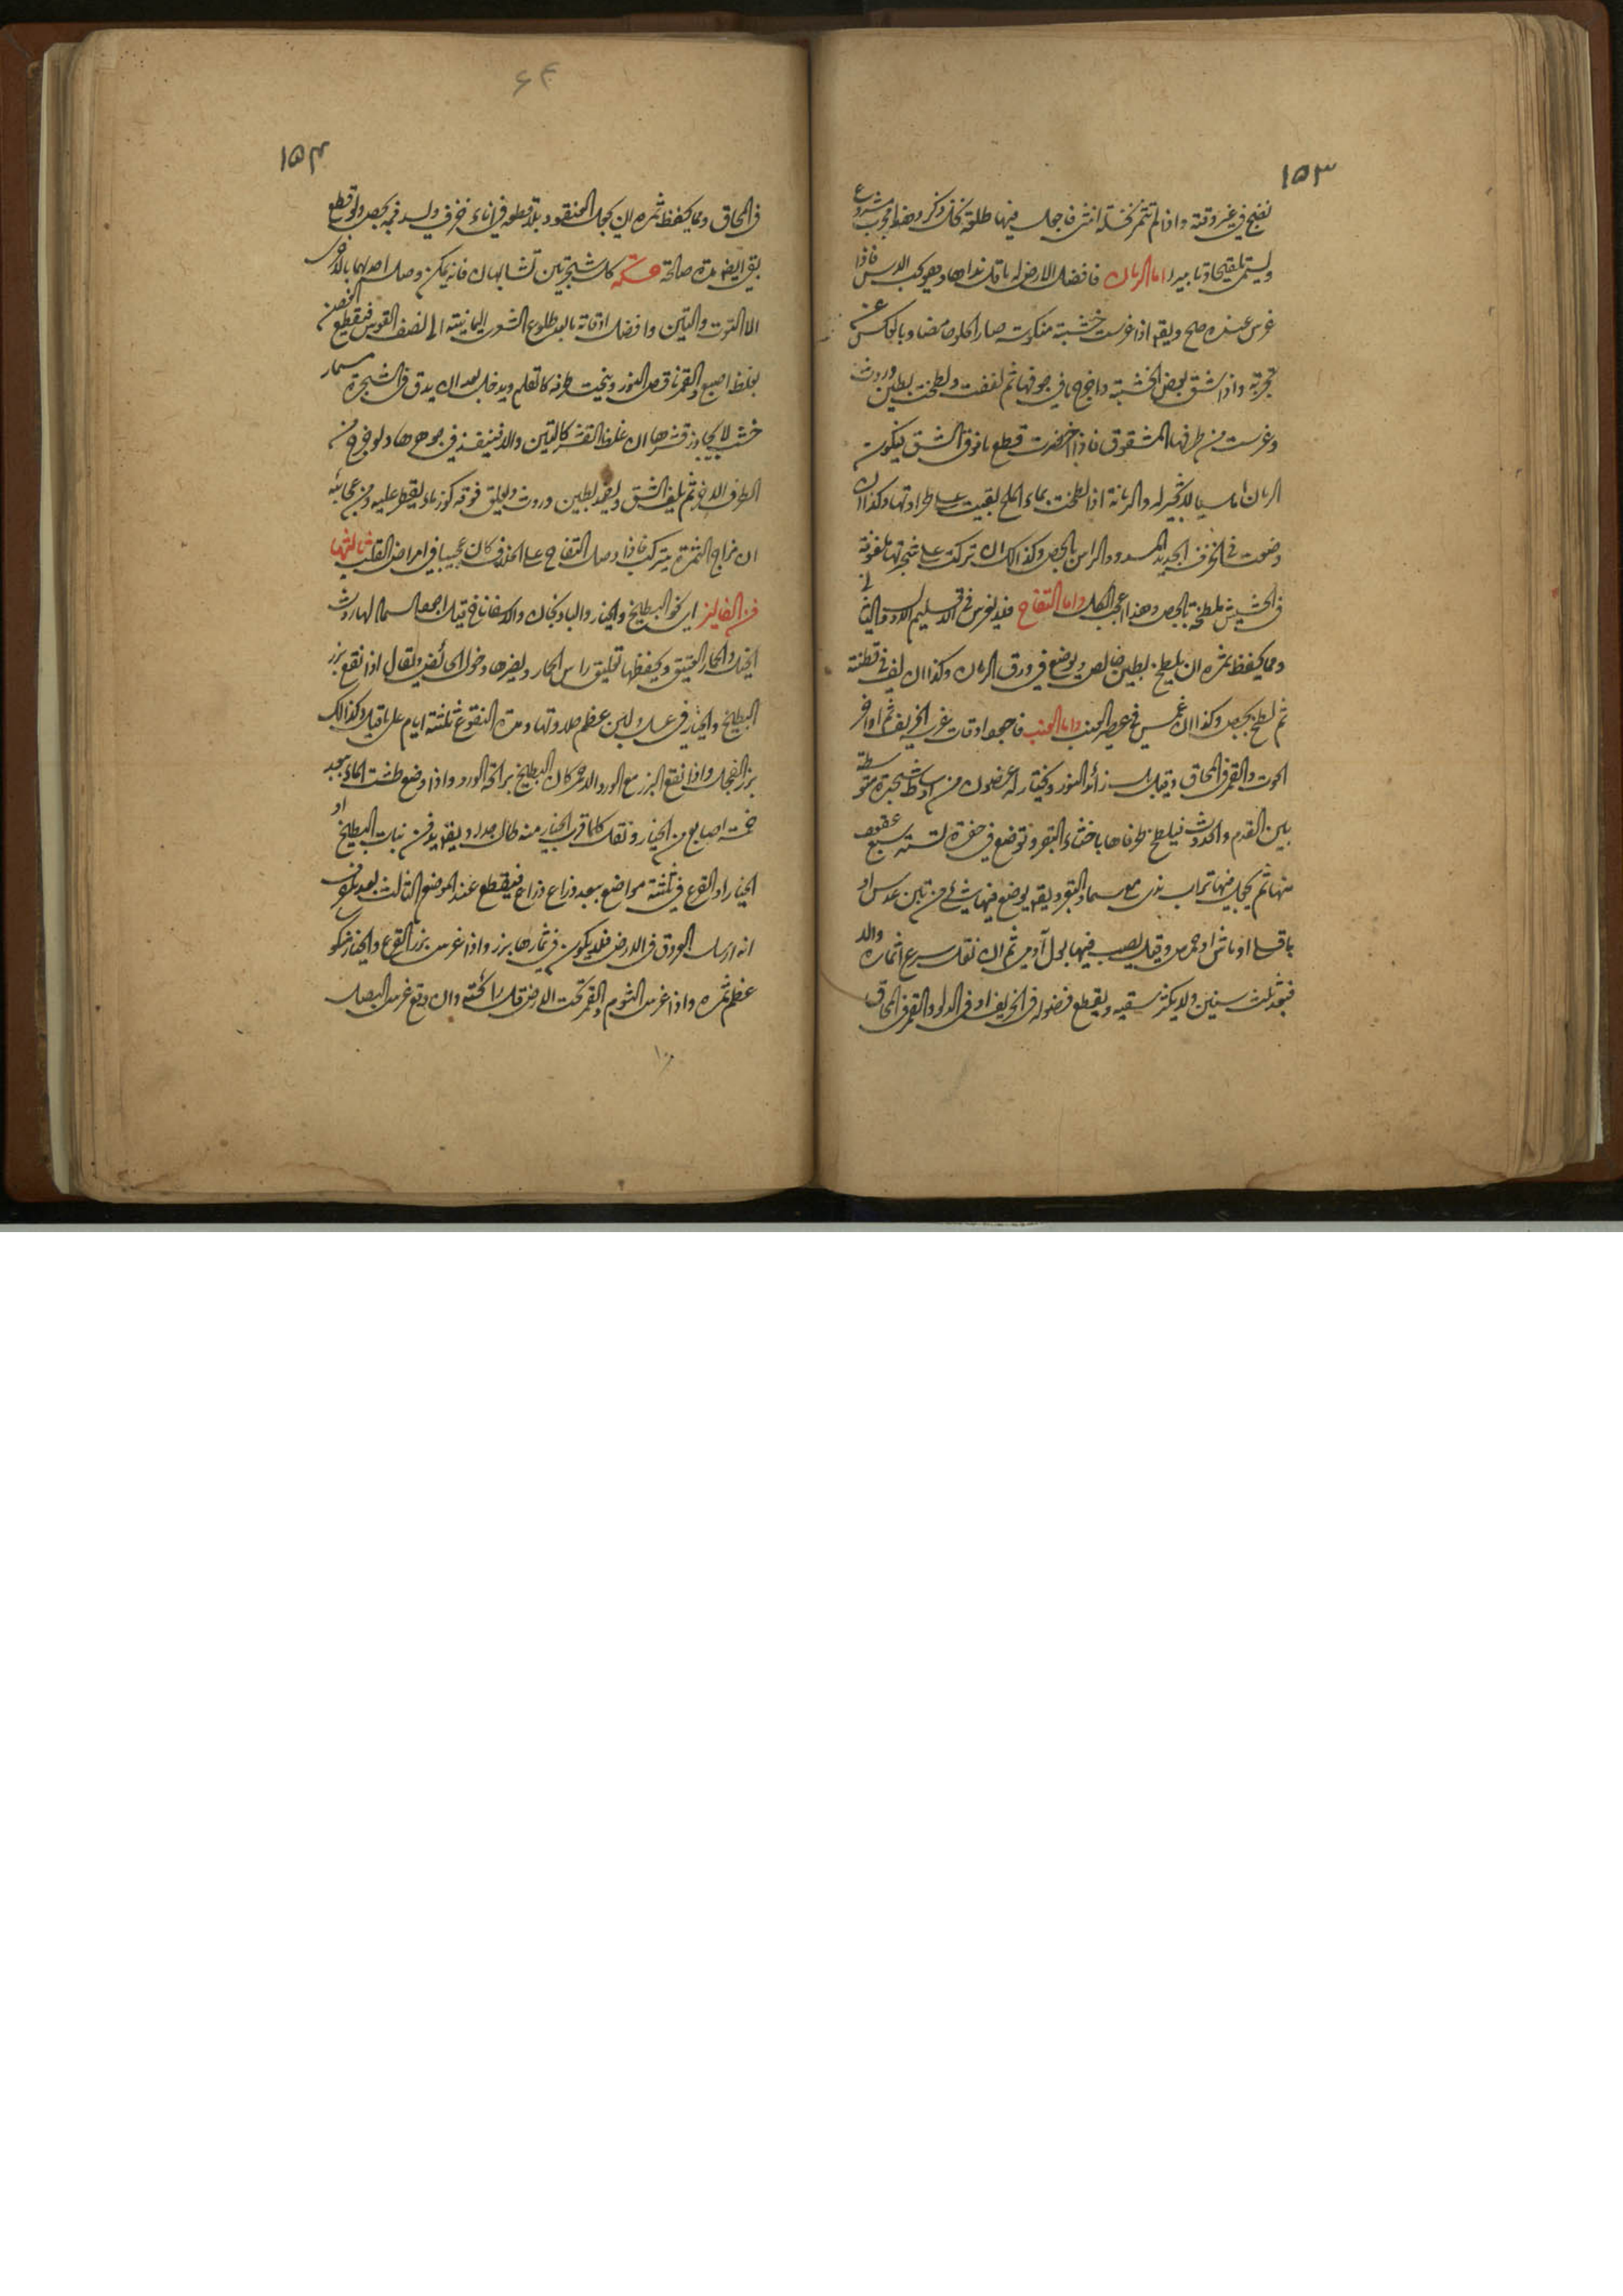 ١٥٣
نضج في غير وقته واذا لم تثمر نخلة انثى فاجعل فيها طلعة نخل ذكر وهذا مجرب مشروع
ويسمى تلقيحا وتابيرا اما الرمان فافضل الارض له ما قل نداها وهو يحب الاس فاذا
غرس عنده صلح ويقم اذا غرست خشبته منكوسة صار الحلو حامضا وبالعكس عن
تجربة واذا شق بعض الخشبة واخرج ما في جوفها ثم لففت ولطخت بطين وروث
وغرست من طرفها المشقوق فاذا اخضرت قطع ما فوق الشق فيكون
الرمان امليسيا لا بزر له والرمانة اذا لطخت بماء الملح بقيت على طراوتها وكذا ان
وضعت في الخزف الجديد المسدود الراس بالجص وكذالك ان تركت على شجرتها ملفوفة
في الحشيش ملطخة بالجص وهذا اعجب الكل واما التفاح فلا يغرس في الاقليم الاول والثاني
ومما يحفظ ثمره ان يلطخ بطين خالص ويوضع في ورق الرمان وكذا ان لف في قطنة
ثم لطخ بجص وكذا ان غمس في عصير العنب واما العنب فاجود اوقات غرسه الخريف ثم اواخر
الحوت والقمر في المحاق وقيل بل زائد النور ويختار له غصون من اوساط شجرة متوسطة
بين القدم والحدوث فيلطخ طرفاها باخثاء البقر وتوضع في حفرة لستة سبع عقود
منها ثم يجعل فيها تراب ندي مع سماد البقر ويقم يوضع فيها شيء من تبن عدس او
باقلا او ماش او حمص وقيل يصب فيها بول آدمي ثم ان نقل سرع اثماره والا
فبعد ثلث سنين ولا يكثر سقيه ويقطع فضوله في الخريف او في الدلو والقمر في المحاق
١٥٤
في المحاق ومما يحفظ ثمره ان يجعل العنقود بلا قطعه في اناء خزفي ويسد فمه بجص ولو قطع
بقي ايضا مدة صالحة حكمة كل شجرتين تشابهان فانه يمكن وصل احدهما بالاخرى
الا التوت والتين وافضل اوقاته ما بعد طلوع الشعرى اليمانية الى نصف القوس فيقطع الغصن
بغلظ اصبع والقمر ناقص النور وينحت طرفه كالقلم ويدخل بعد ان يدق في الشجرة مسمار
خشب لا يجاوز قشرها ان غلظ القشر كالتين والا فينفذ في جوهرها ولو خرج من
الطرف الاخر ثم يلف الشق ويضمد بطين وروث ويعلق فوقه كوز ماء يقطر عليه ومن عجائبه
ان مزاج الثمرة يتركب فاذا وصل التفاح على الخلاف كان عجيبا في امراض القلب ثالثها
فن الفاليز اي نحو البطيخ والخيار والباذنجان والاسفاناخ قيل اجود السماد لها روث
الخيل والحمار العتيق ويحفظها تعليق راس الحمار ويضرها دخول الحائض ويقال اذا نقع بزر
البطيخ والخيار في عسل ولبن عظم حلاوتها ومدة النقوع ثلثة ايام على ما قيل وكذالك
بزر الفجل واذا نقع البزر مع الورد الاحمر كان البطيخ برائحة الورد واذا وضع طشت الماء ببعد
خمسة اصابع من الخيار ونقل كلما قرب الخيار منه طال جدا ويقم يدفن نبات البطيخ او
الخيار او القرع في ثلثة مواضع ببعد ذراع ذراع فيقطع عند الموضع الثالث بعد تحقق
انه ارسل العروق في الارض فلا يكون في ثمارها بزر واذا غرس بزر القرع والخيار منكو
عظم ثمره واذا غرس الثوم والقمر تحت الارض قل رائحته وان وقع غرس البصل